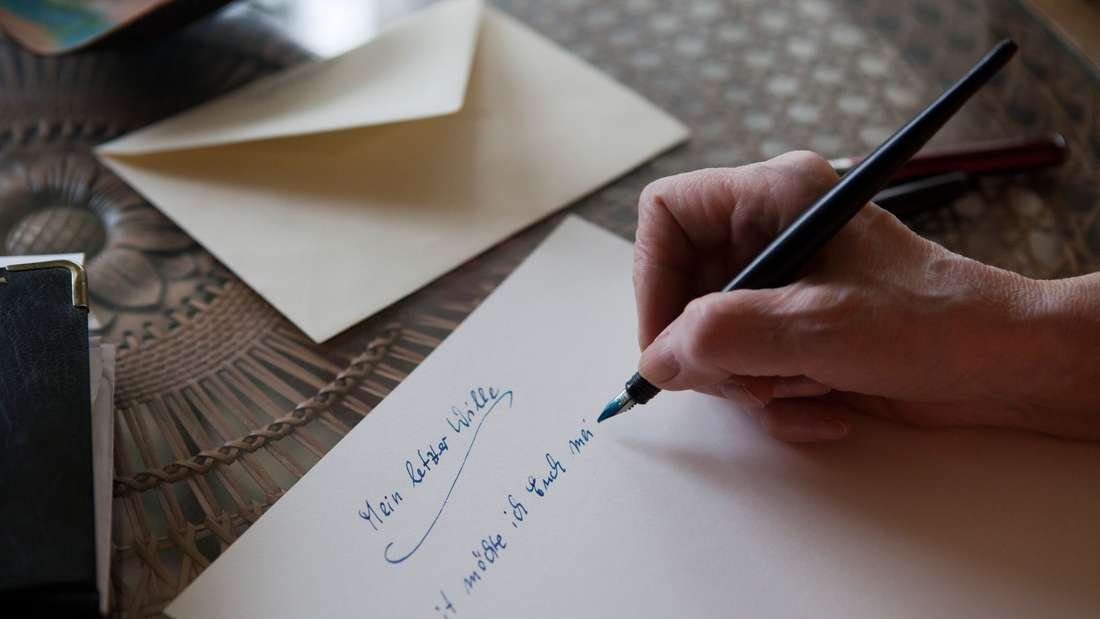 Mein letzter Wille
it möchte ich Euch mei